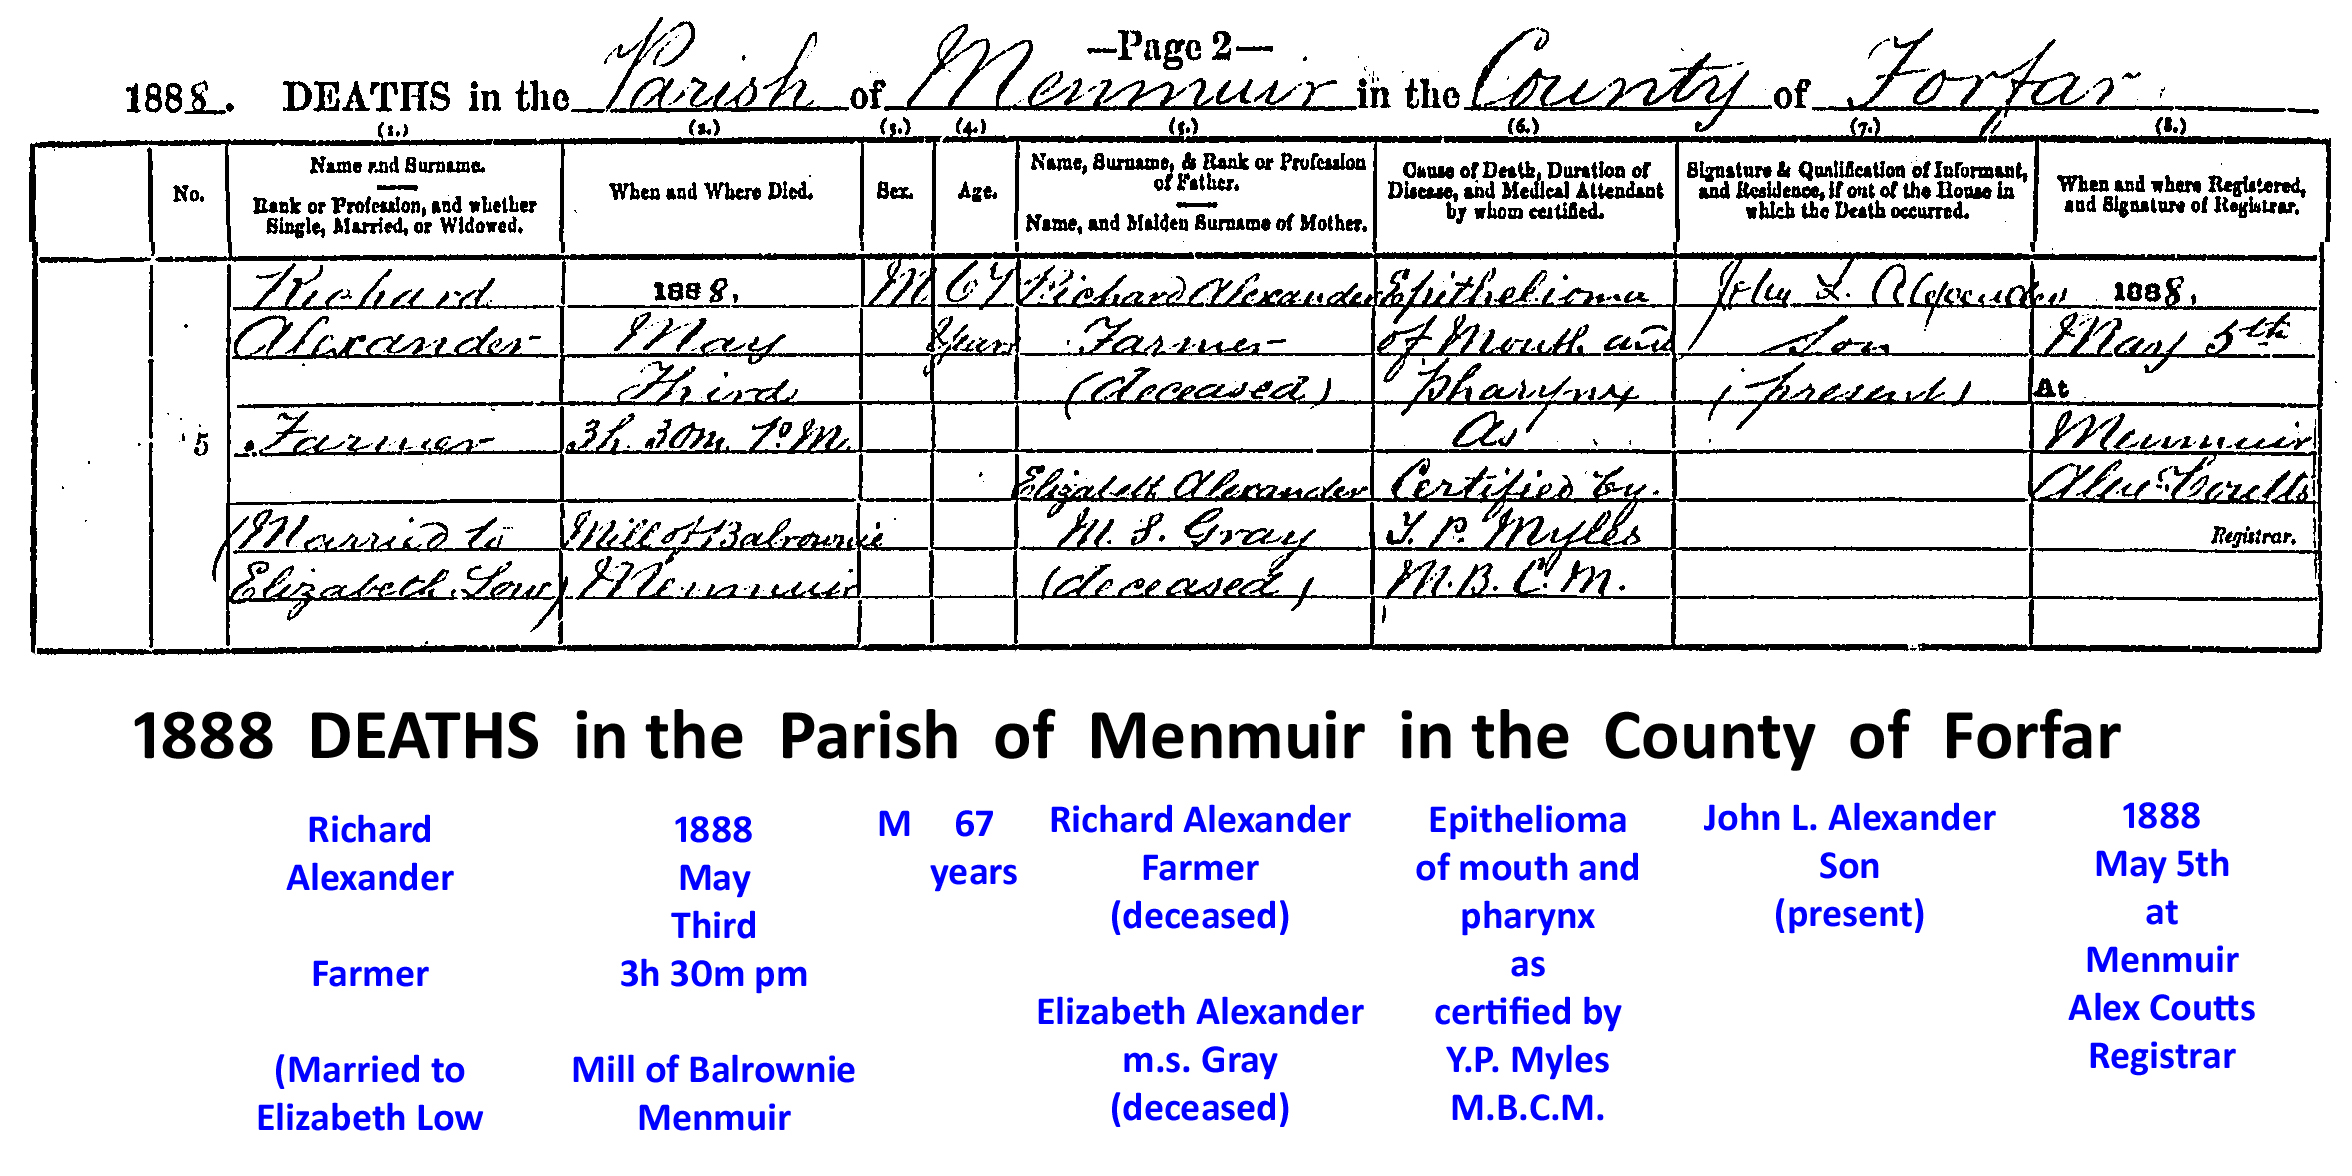 —Page 2—
1888. DEATHS in the Parish of Menmuir in the County of Forfar
(1.) (2.) (3.) (4.) (5.) (6.) (7.) (8.)
No.
Name and Surname.
Rank or Profession, and whether
Single, Married, or Widowed.
When and Where Died.
Sex.
Age.
Name, Surname, & Rank or Profession
of Father.
Name, and Maiden Surname of Mother.
Cause of Death, Duration of
Disease, and Medical Attendant
by whom certified.
Signature & Qualification of Informant,
and Residence, if out of the House in
which the Death occurred.
When and where Registered,
and Signature of Registrar.
5
Richard
Alexander
Farmer
(Married to
Elizabeth Low)
1888,
May
Third
3h. 30m. P.M.
Mill of Balrownie
Menmuir
M
67
years
Richard Alexander
Farmer
(deceased)
Elizabeth Alexander
M. S. Gray
(deceased)
Epithelioma
of Mouth and
pharynx
As
Certified by.
Y. P. Myles
M.B. C.M.
John L. Alexander
Son
(present)
1888,
May 5th
At
Menmuir
Alex Coutts
Registrar.
1888 DEATHS in the Parish of Menmuir in the County of Forfar
Richard
Alexander
Farmer
(Married to
Elizabeth Low
1888
May
Third
3h 30m pm
Mill of Balrownie
Menmuir
M
67
years
Richard Alexander
Farmer
(deceased)
Elizabeth Alexander
m.s. Gray
(deceased)
Epithelioma
of mouth and
pharynx
as
certified by
Y.P. Myles
M.B.C.M.
John L. Alexander
Son
(present)
1888
May 5th
at
Menmuir
Alex Coutts
Registrar